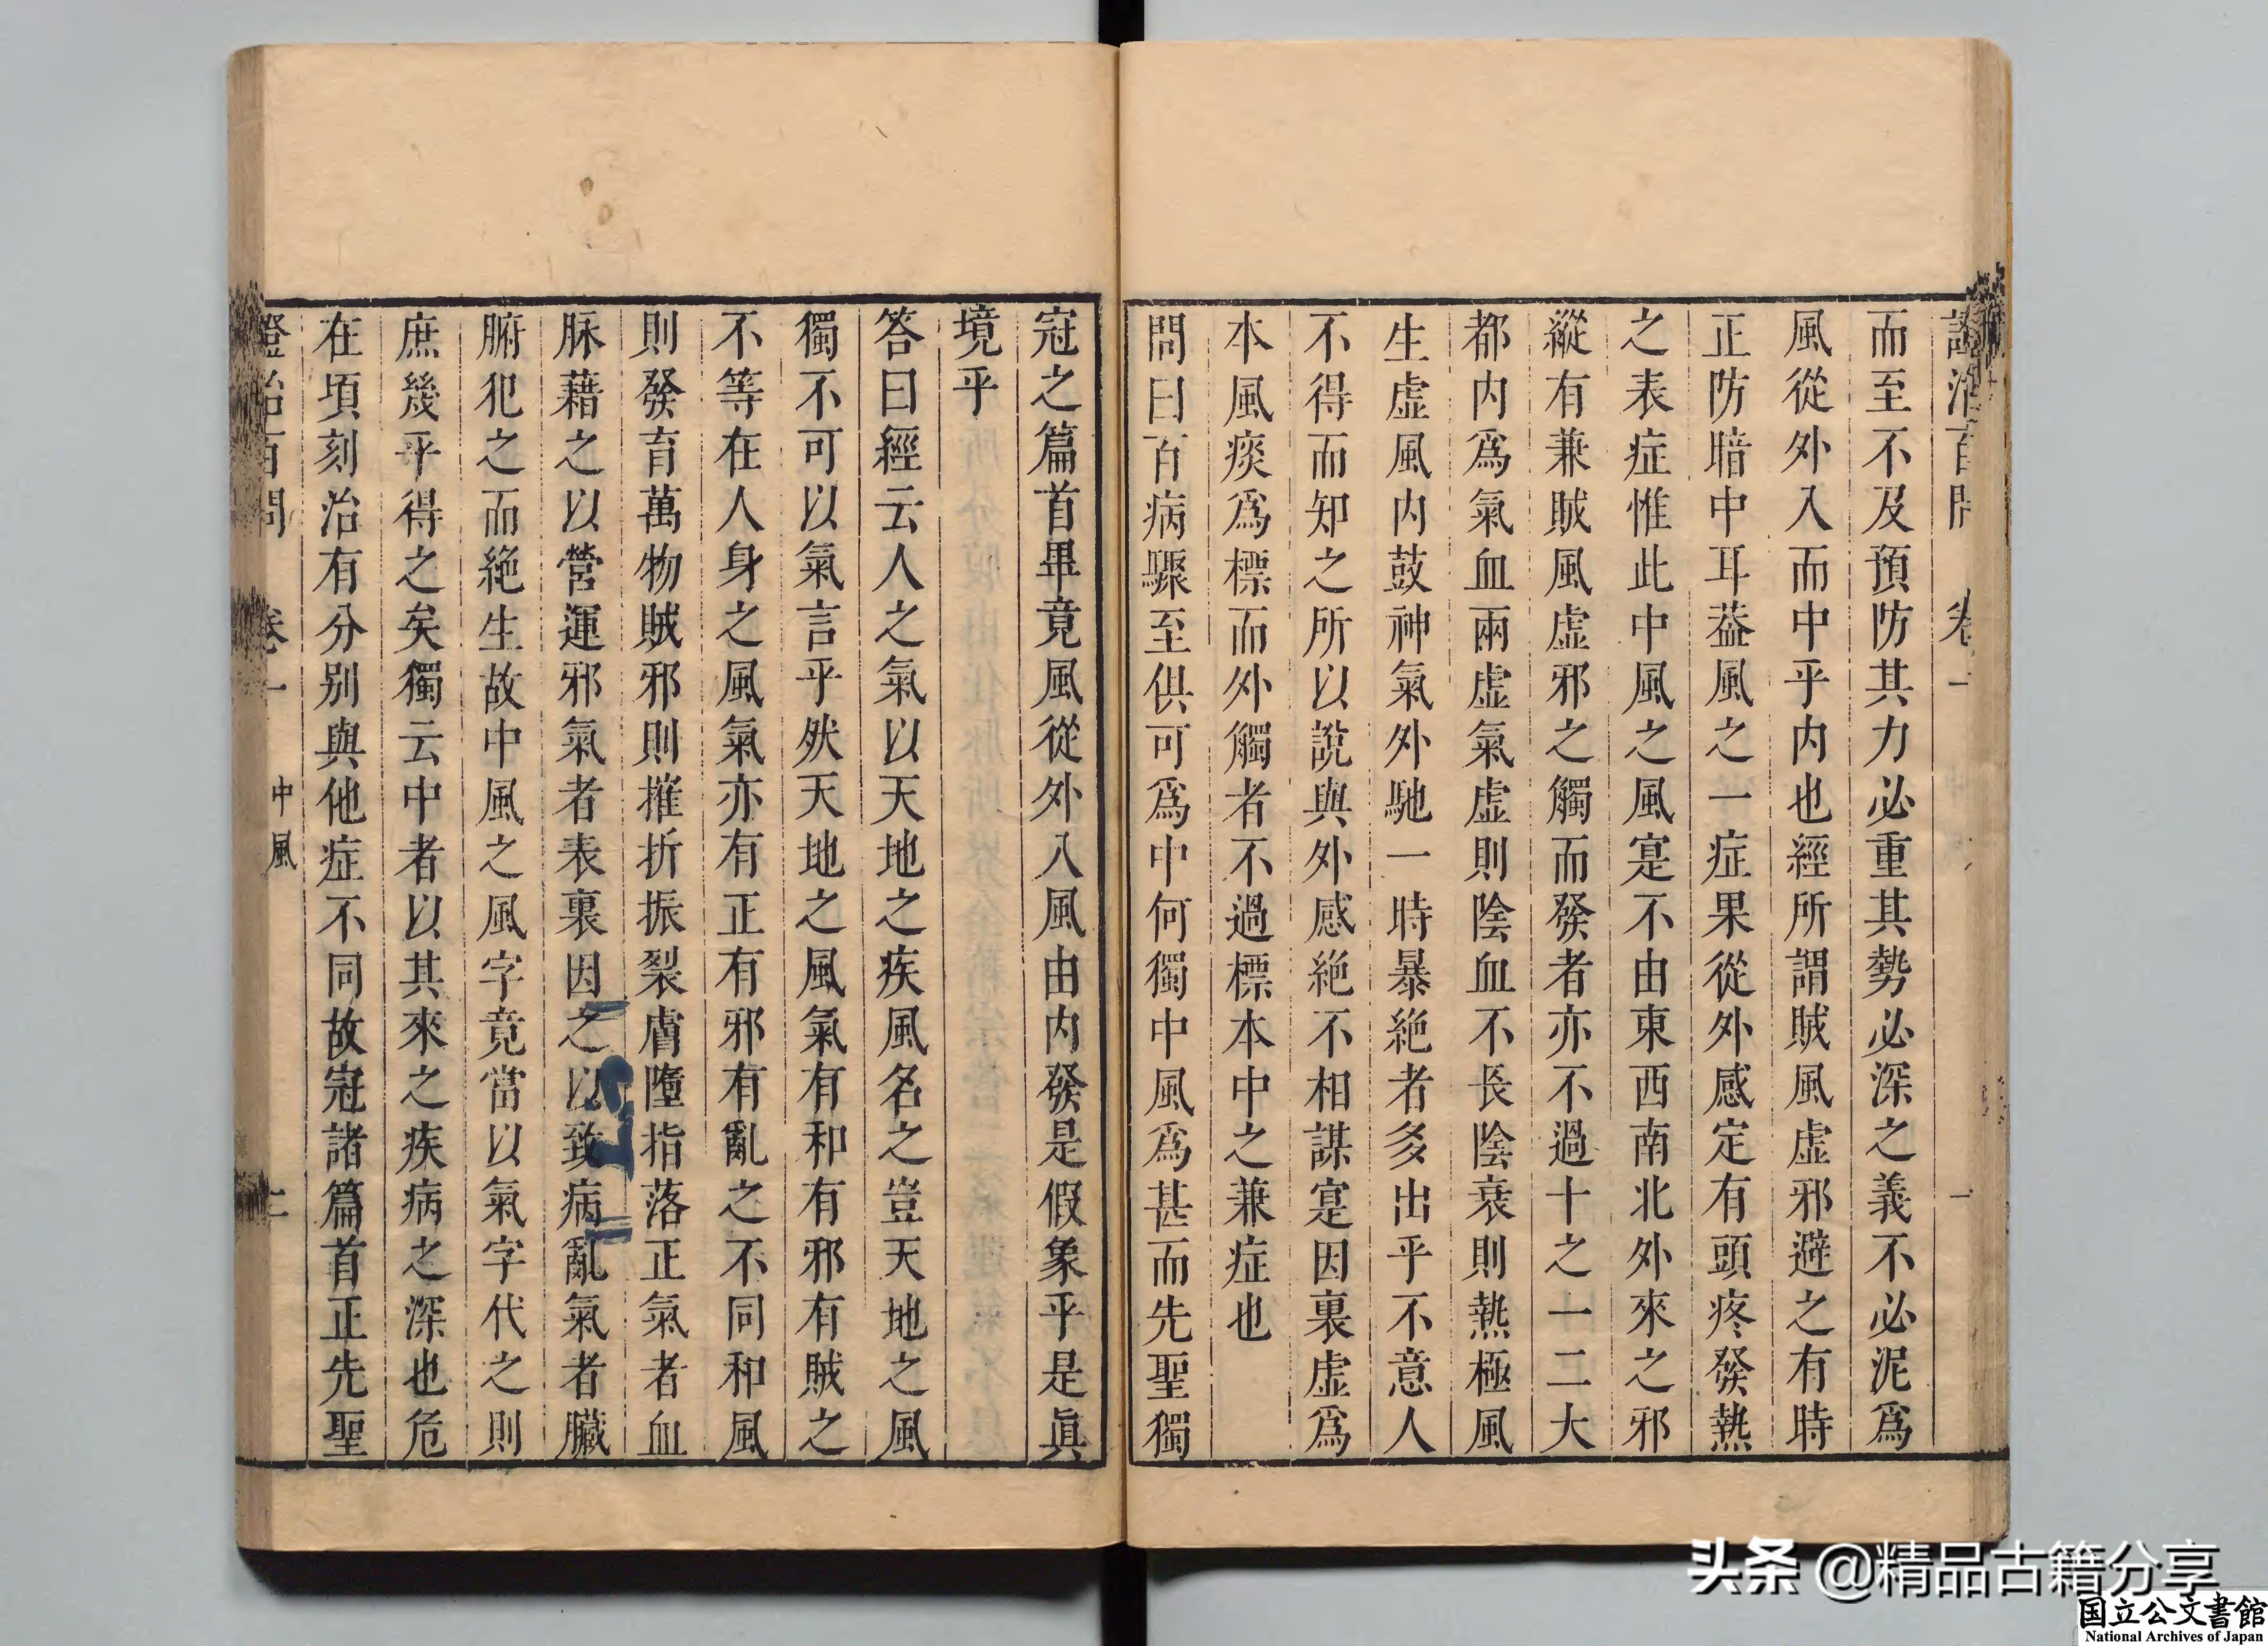 證治百問 卷一 一
而至不及預防其力必重其勢必深之義不必泥爲
風從外入而中乎内也經所謂賊風虛邪避之有時
正防暗中耳葢風之一症果從外感定有頭疼發熱
之表症惟此中風之風寔不由東西南北外來之邪
縱有兼賊風虛邪之觸而發者亦不過十之一二大
都内爲氣血兩虛氣虛則陰血不長陰衰則熱極風
生虛風内鼓神氣外馳一時暴絶者多出乎不意人
不得而知之所以說與外感絶不相謀寔因裏虛爲
本風痰爲標而外觸者不過標本中之兼症也
問曰百病驟至俱可爲中何獨中風爲甚而先聖獨
冠之篇首畢竟風從外入風由内發是假象乎是眞
境乎
答曰經云人之氣以天地之疾風名之豈天地之風
獨不可以氣言乎然天地之風氣有和有邪有賊之
不等在人身之風氣亦有正有邪有亂之不同和風
則發育萬物賊邪則摧折振裂膚墮指落正氣者血
脉藉之以營運邪氣者表裏因之以致病亂氣者臟
腑犯之而絶生故中風之風字竟當以氣字代之則
庶幾乎得之矣獨云中者以其來之疾病之深也危
在頃刻治有分别與他症不同故冠諸篇首正先聖
證治百問 卷一 中風 二
头条 @精品古籍分享
国立公文書館
National Archives of Japan